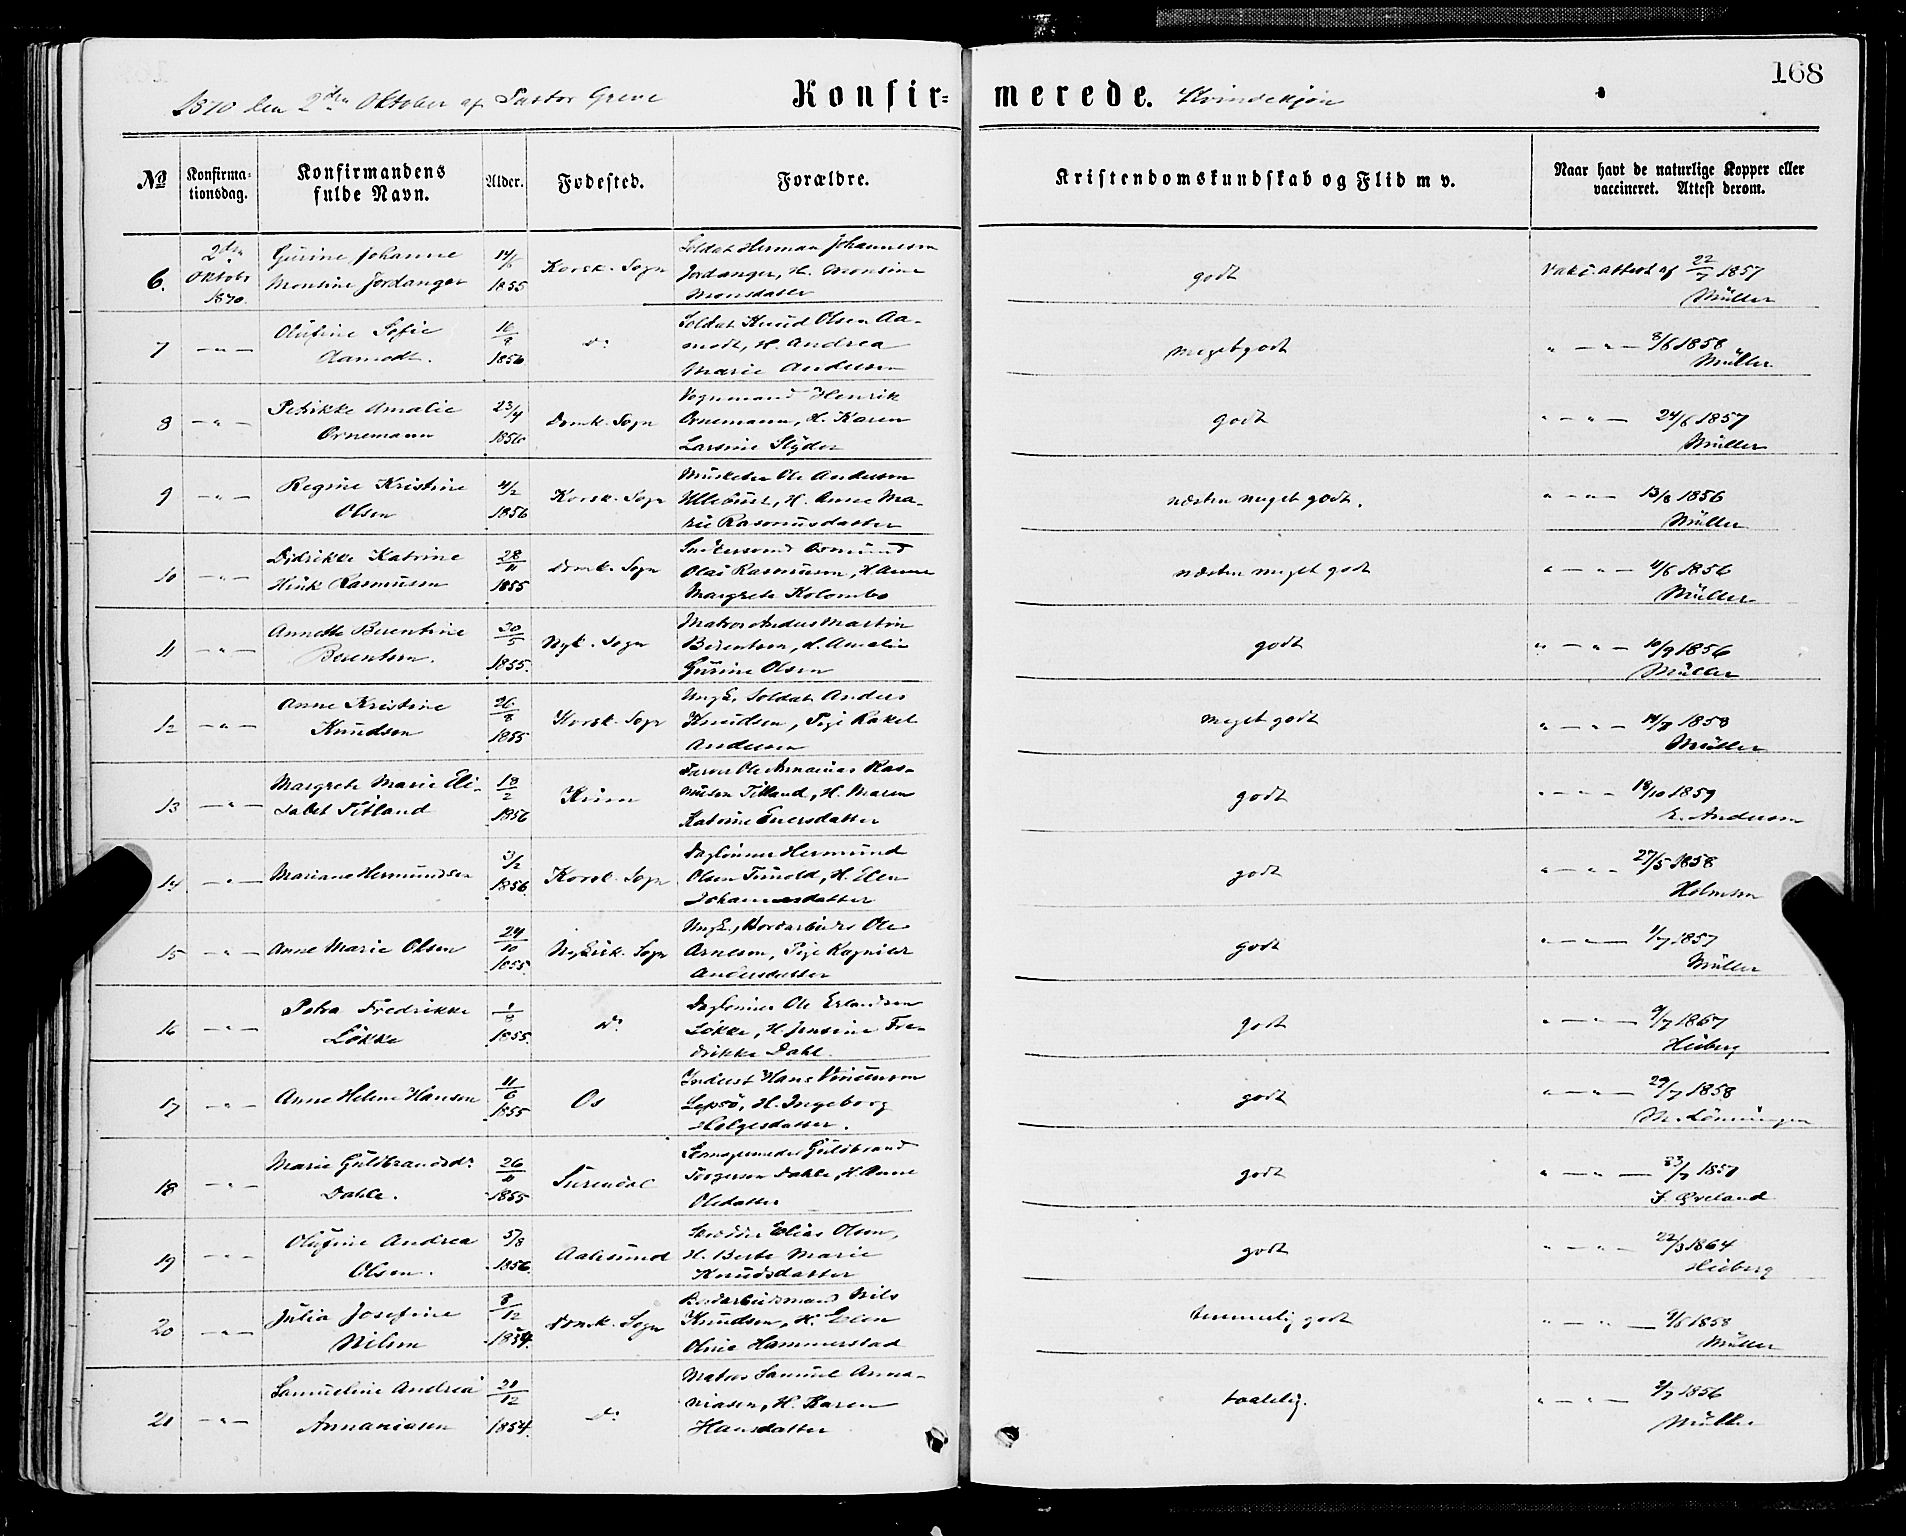 168
1870 den 2den Oktober af Pastor Greve
Konfir=
merede. Kvindekjøn
No
Konfirma-
tionsdag.
Konfirmandens
fulde Navn.
Alder.
Fodested.
Forældre.
Kristendomskundskab og Flid m v.
Naar havt de naturlige Kopper eller
vaccineret. Attest derom.
6.
2den
Oktobr
1870.
Gurine Johanne
Monsine Jordanger
1855
Korsk. Sogn
Soldat Herman Johannesen
Jordanger, H. Monsine
Monsdatter
godt
Vakc. attest af 22/7 1857
Müller
7 — " —
Olufine Sofie
Aamodt.
16/9
1856
do
Soldat Knud Olsen Aa-
modt, H. Andrea
Marie Andersen
meget godt
" — " — 8/6 1858
Müller
8 — " —
Petrikke Amalie
Ornemann
23/4
1856
Domk. Sogn
Vognmand Henrik
Ornemann, H. Karen
Larsine Slyder
godt
" — " — 24/6 1857
Müller
9 — " —
Regine Kristine
Olsen
4/2
1856
Korsk. Sogn
Musketer Ole Andersen
H. Anne Ma-
rie Rasmusdatter
næsten meget godt.
" — " — 13/8 1856
Müller
10 — " —
Didrikke Katrine
Rasmussen
28/11
1855
Domk. Sogn
Olai Rasmussen, H Anne
Margrete Kolombo
næsten meget godt
" — " — 4/6 1856
Müller
11 — " —
Annette Berentine
Berentsen.
30/5
1855.
Nyk. Sogn
Matros Anders Martin
Berentsen, H. Amalie
Gurine Olsen
godt
" — " — 10/9 1856
Müller
12 — " —
Anne Kristine
Knudsen
26/8
1855
Korsk. Sogn
Ungk. Soldat Anders
Knudsen, Pige Rakel
Andersen
meget godt
" — " — 14/7 1858
Müller
13 — " —
Margrete Marie Eli-
sabet Titland
18/2
1856
Farver Ole Annanias Ras-
musen Titland, H. Maren
Katrine Enersdatter
godt
" — " — 18/10 1859
Andersen
14 — " —
Mariane Hermundsen
3/2
1856.
Korsk. Sogn
Daglønner Hermund
Olsen H. Elen
Johannesdatter
godt
" — " — 27/5 1858
Holmsen
15 — " —
Anne Marie Olsen
24/10
1855
Nykirk. Sogn
Ungk., Bordarbeider Ole
Arnesen, Pige Ragnilde
Andersdatter
godt
" — " — 1/7 1857
Müller
16 — " —
Petra Fredrikke
Løkke
1/8
1855.
do
Daglønner Ole Erlandsen
Løkke, H Jensine Fre-
drikke Dahl.
godt
" — " — 9/7 1867
Heiberg
17 — " —
Anne Helene Hansen
11/6
1855
Os
Inderst Hans
Lepsø, H. Ingeborg
Helgesdatter.
godt
" — " — 29/7 1858
M. Lønningen
18 — " —
Marie Guldbrandsdr
Dahle.
26/11
1855
Surendal
Guldbrand
Torgersen Dahle, H. Anne
Olsdatter
godt
" — " — 23/7 1857
19 — " —
Olufine Andrea
Olsen.
5/8
1856.
Aalesund
Skrædder Elias Olsen,
H. Berte Marie
Knudsdatter
godt
" — " — 22/3 1864
Heiberg
20 — " —
Julia Josefine
Nilsen
8/12
1854.
Domk. Sogn
Bordarbeidsmand Nils
Knudsen, H.
Oline Hammerstad
temmelig godt
" — " — 9/6 1858
Müller
21 — " —
Samueline Andrea
Annaniasen
21/12
1854.
do
Matros Samuel Anna-
niasen, H. Karen
Hansdatter
taalelig.
" — " — 2/7 1856
Müller